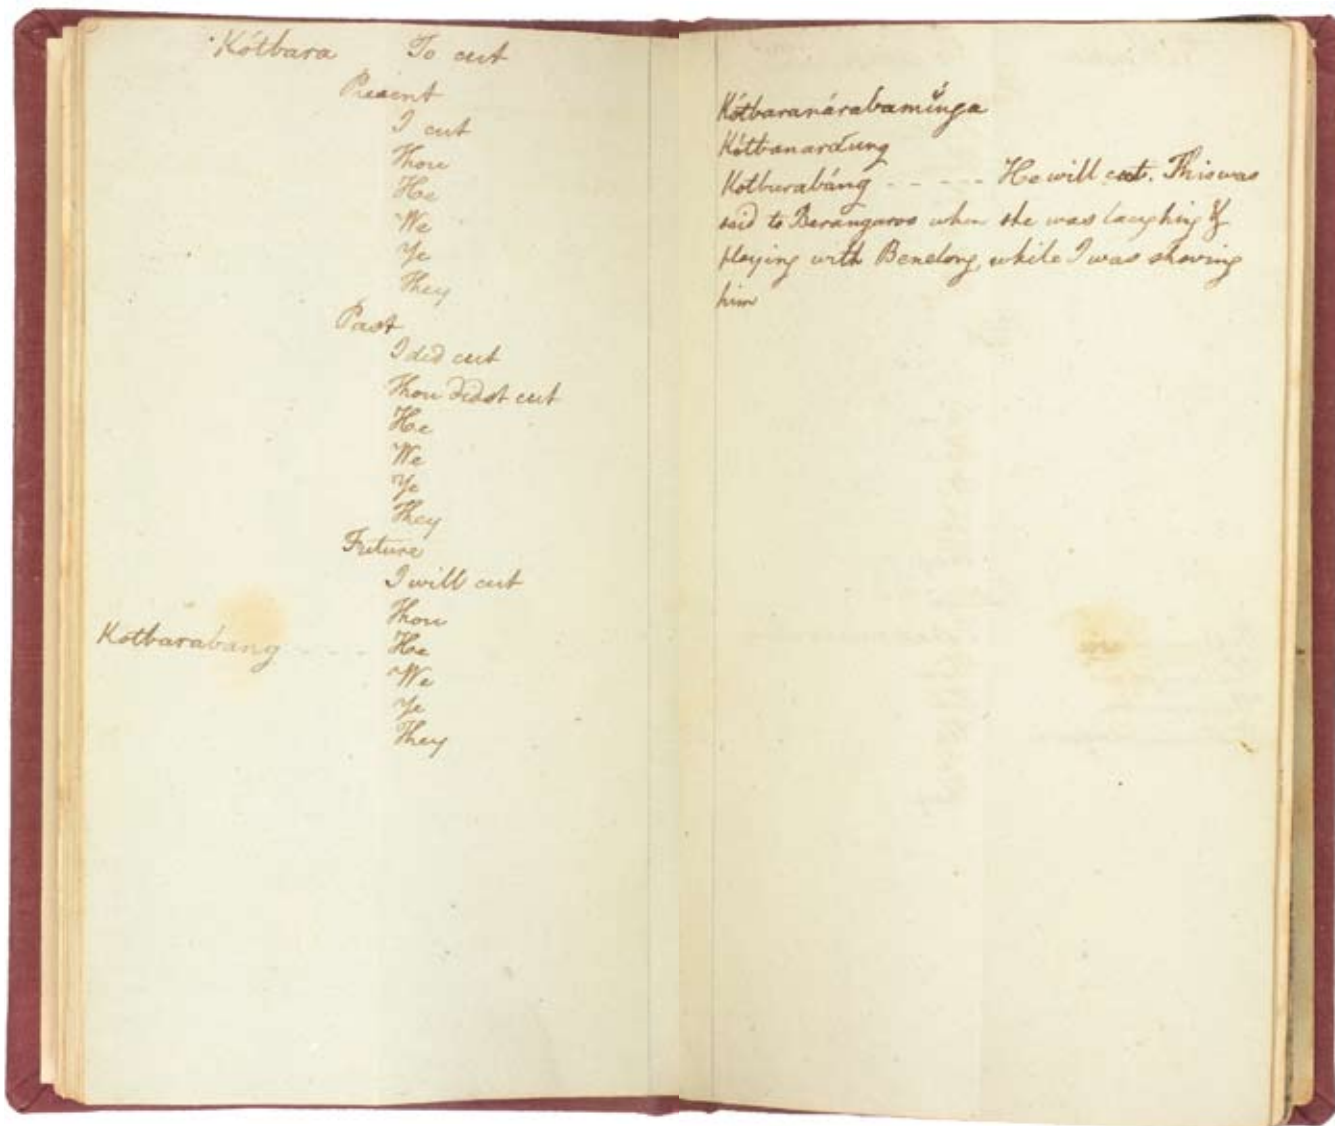 Kótbara To cut
Present
I cut
Thou
He
We
Ye
They
Past
I did cut
Thou didst cut
He
We
Ye
They
Future
I will cut
Thou
Kotbarabang - - - - He
We
Ye
They
Kótbaranárabamínga
Kótbanardung
Kotburabáng - - - - - He will cut. This was
said to Barangaroo when she was laughing &
playing with Benelong, while I was shaving
him